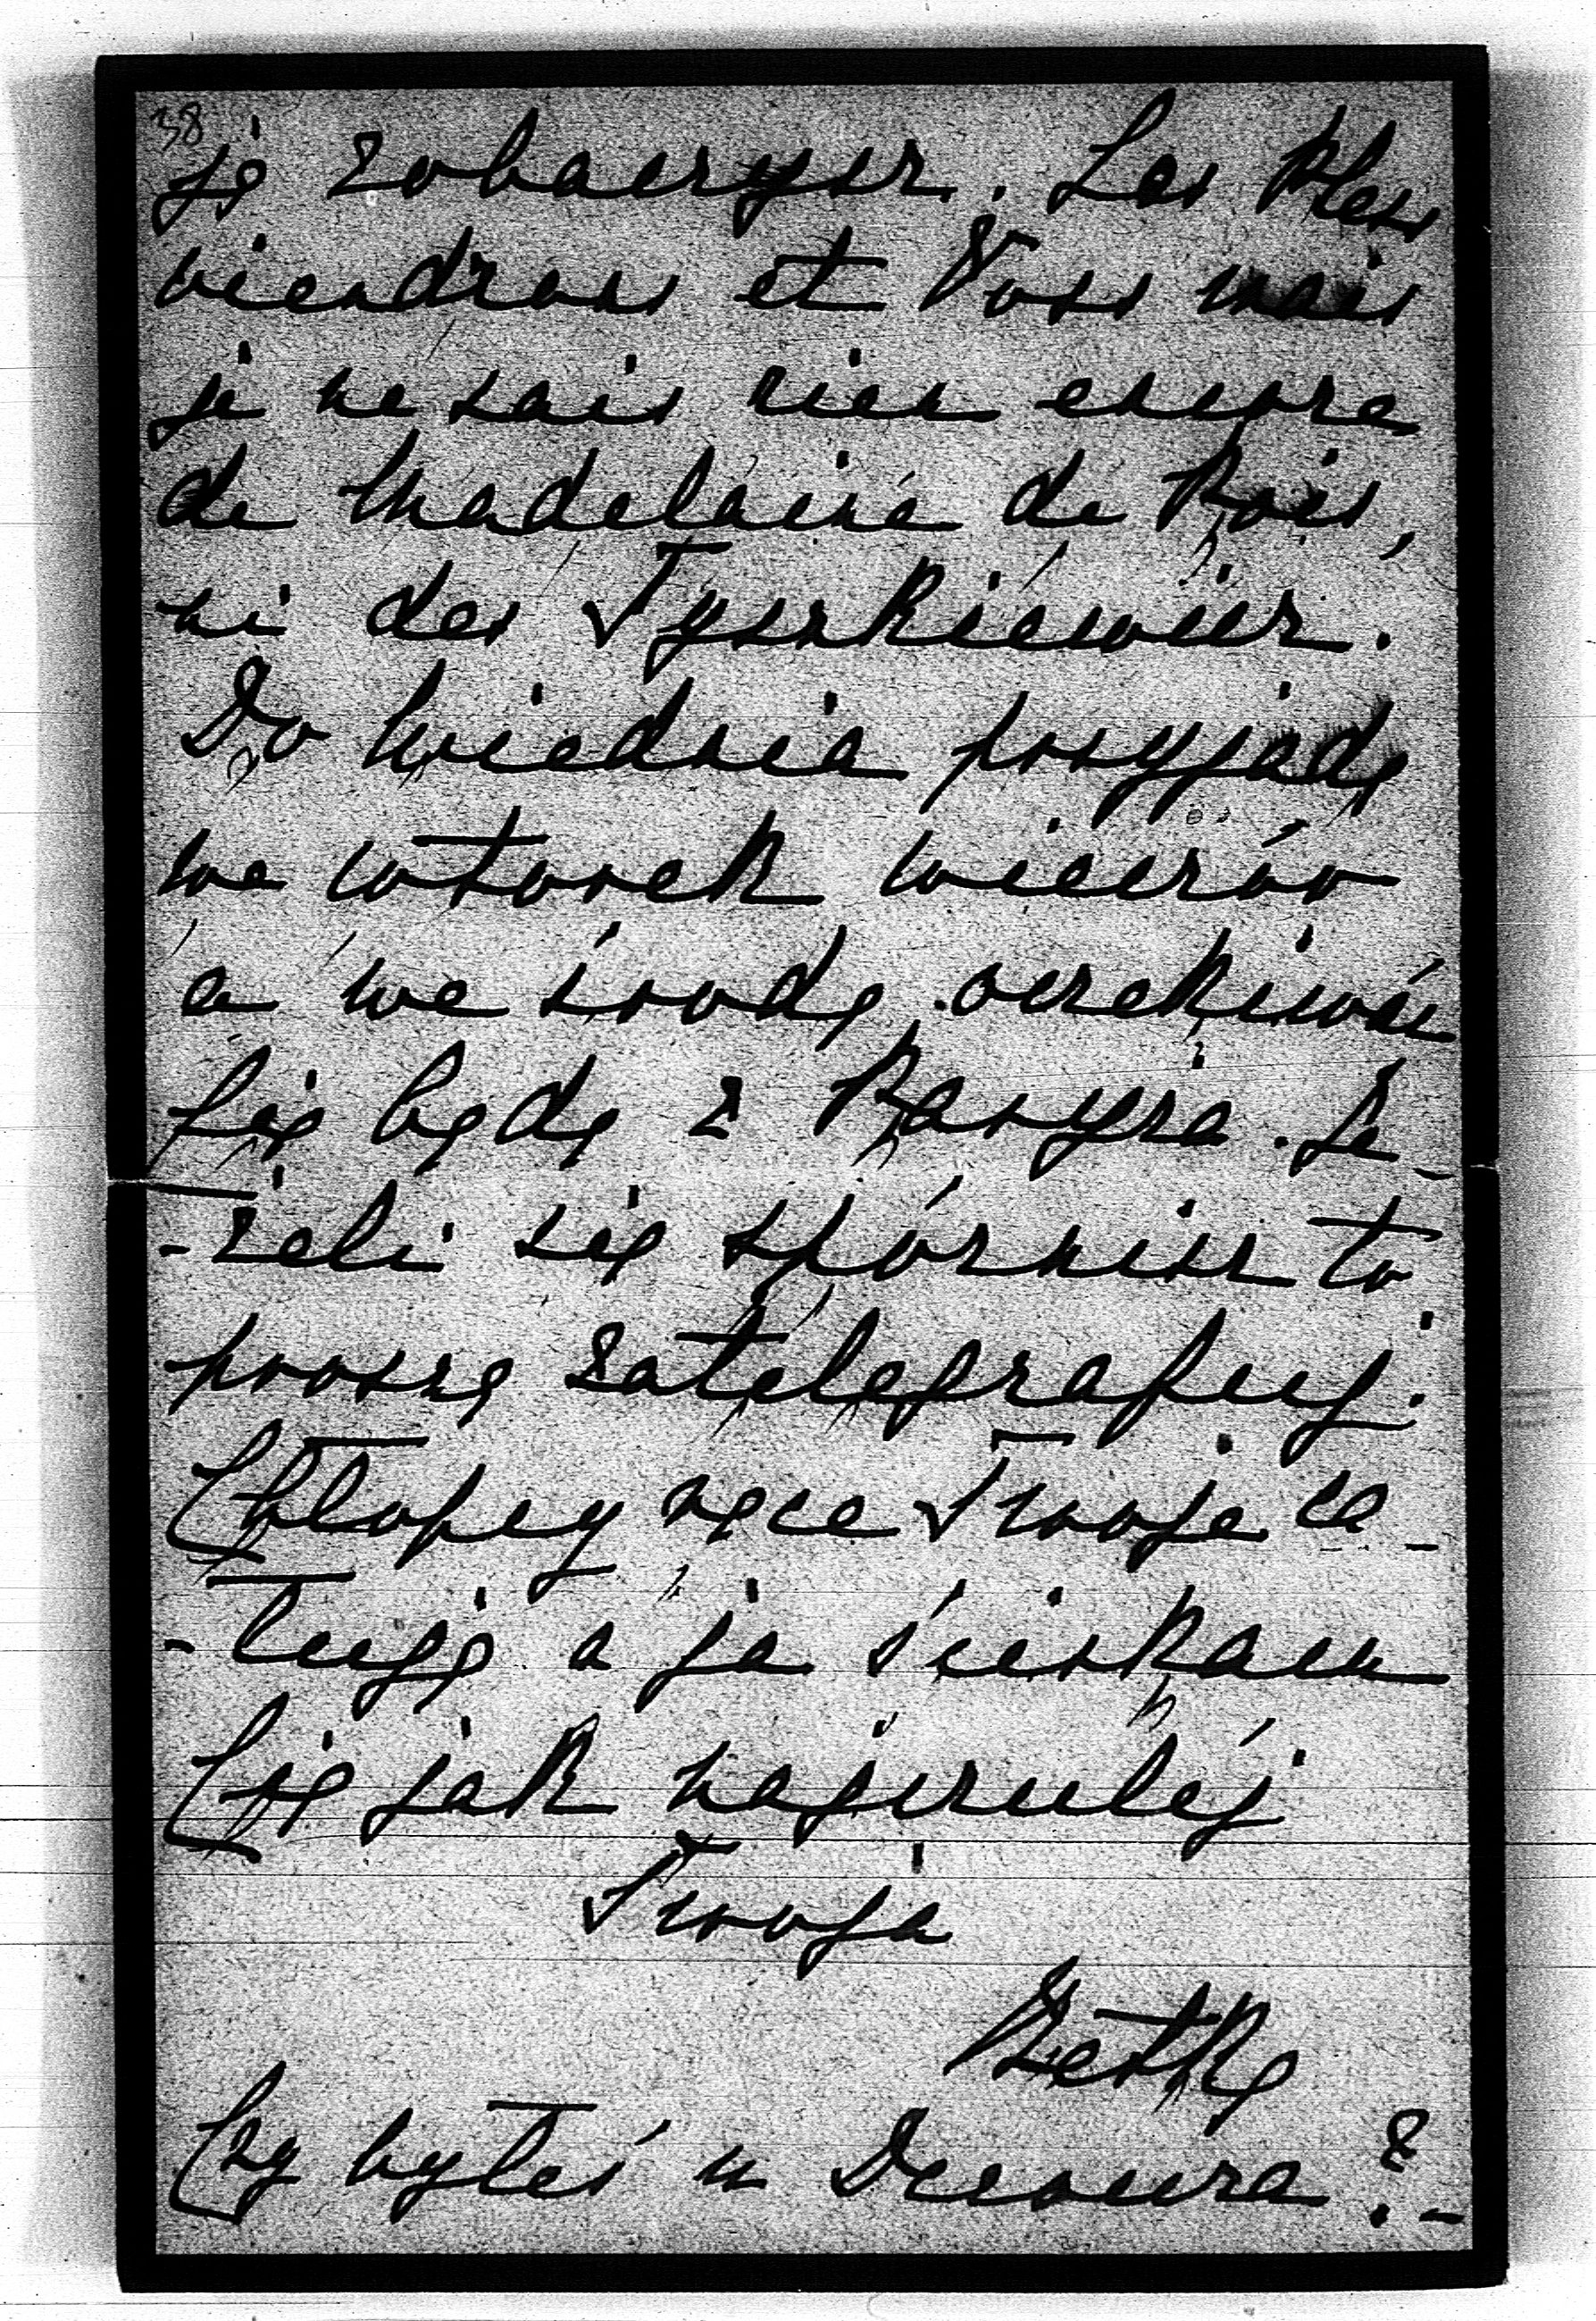 38
ją zobaczysz. Les Pless
viendrons et Voss mais
je ne sais rien encore
de Madelaine de Rois,
ni des Tyszkiewicz.
Do Wiednia przyjadę
we wtorek wieczór
a we środę oczekiwać
Cię będę z Paryża. Je-
-żeli się spóźnisz to
proszę zatelegrafuj.
Chłopcy ręce Twoje ca-
-łują a ja ściskam
Cię jak najczulej
Twoja
Betka
Czy byłeś u Deroura?-